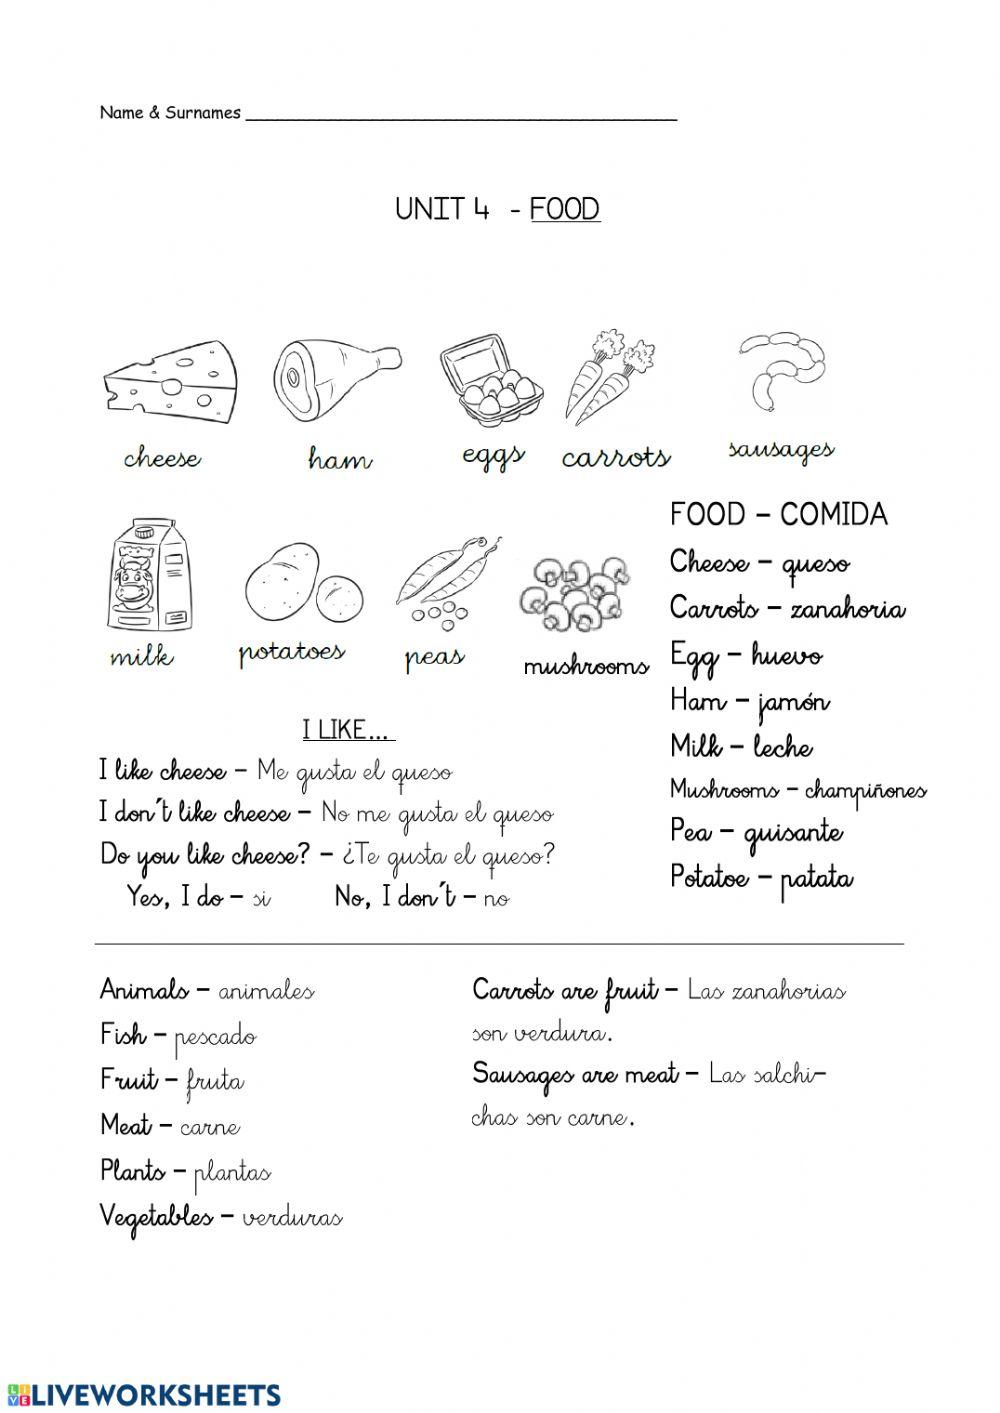 Name & Surnames ________________________________________
UNIT 4 - FOOD
cheese ham eggs carrots sausages
milk potatoes peas mushrooms
FOOD – COMIDA
Cheese – queso
Carrots – zanahoria
Egg – huevo
Ham – jamón
Milk – leche
Mushrooms – champiñones
Pea – guisante
Potatoe – patata
I LIKE...
I like cheese – Me gusta el queso
I don´t like cheese – No me gusta el queso
Do you like cheese? – ¿Te gusta el queso?
Yes, I do – si No, I don´t – no
Animals – animales
Fish – pescado
Fruit – fruta
Meat – carne
Plants – plantas
Vegetables – verduras
Carrots are fruit – Las zanahorias
son verdura.
Sausages are meat – Las salchi–
chas son carne.
LIVE LIVEWORKSHEETS